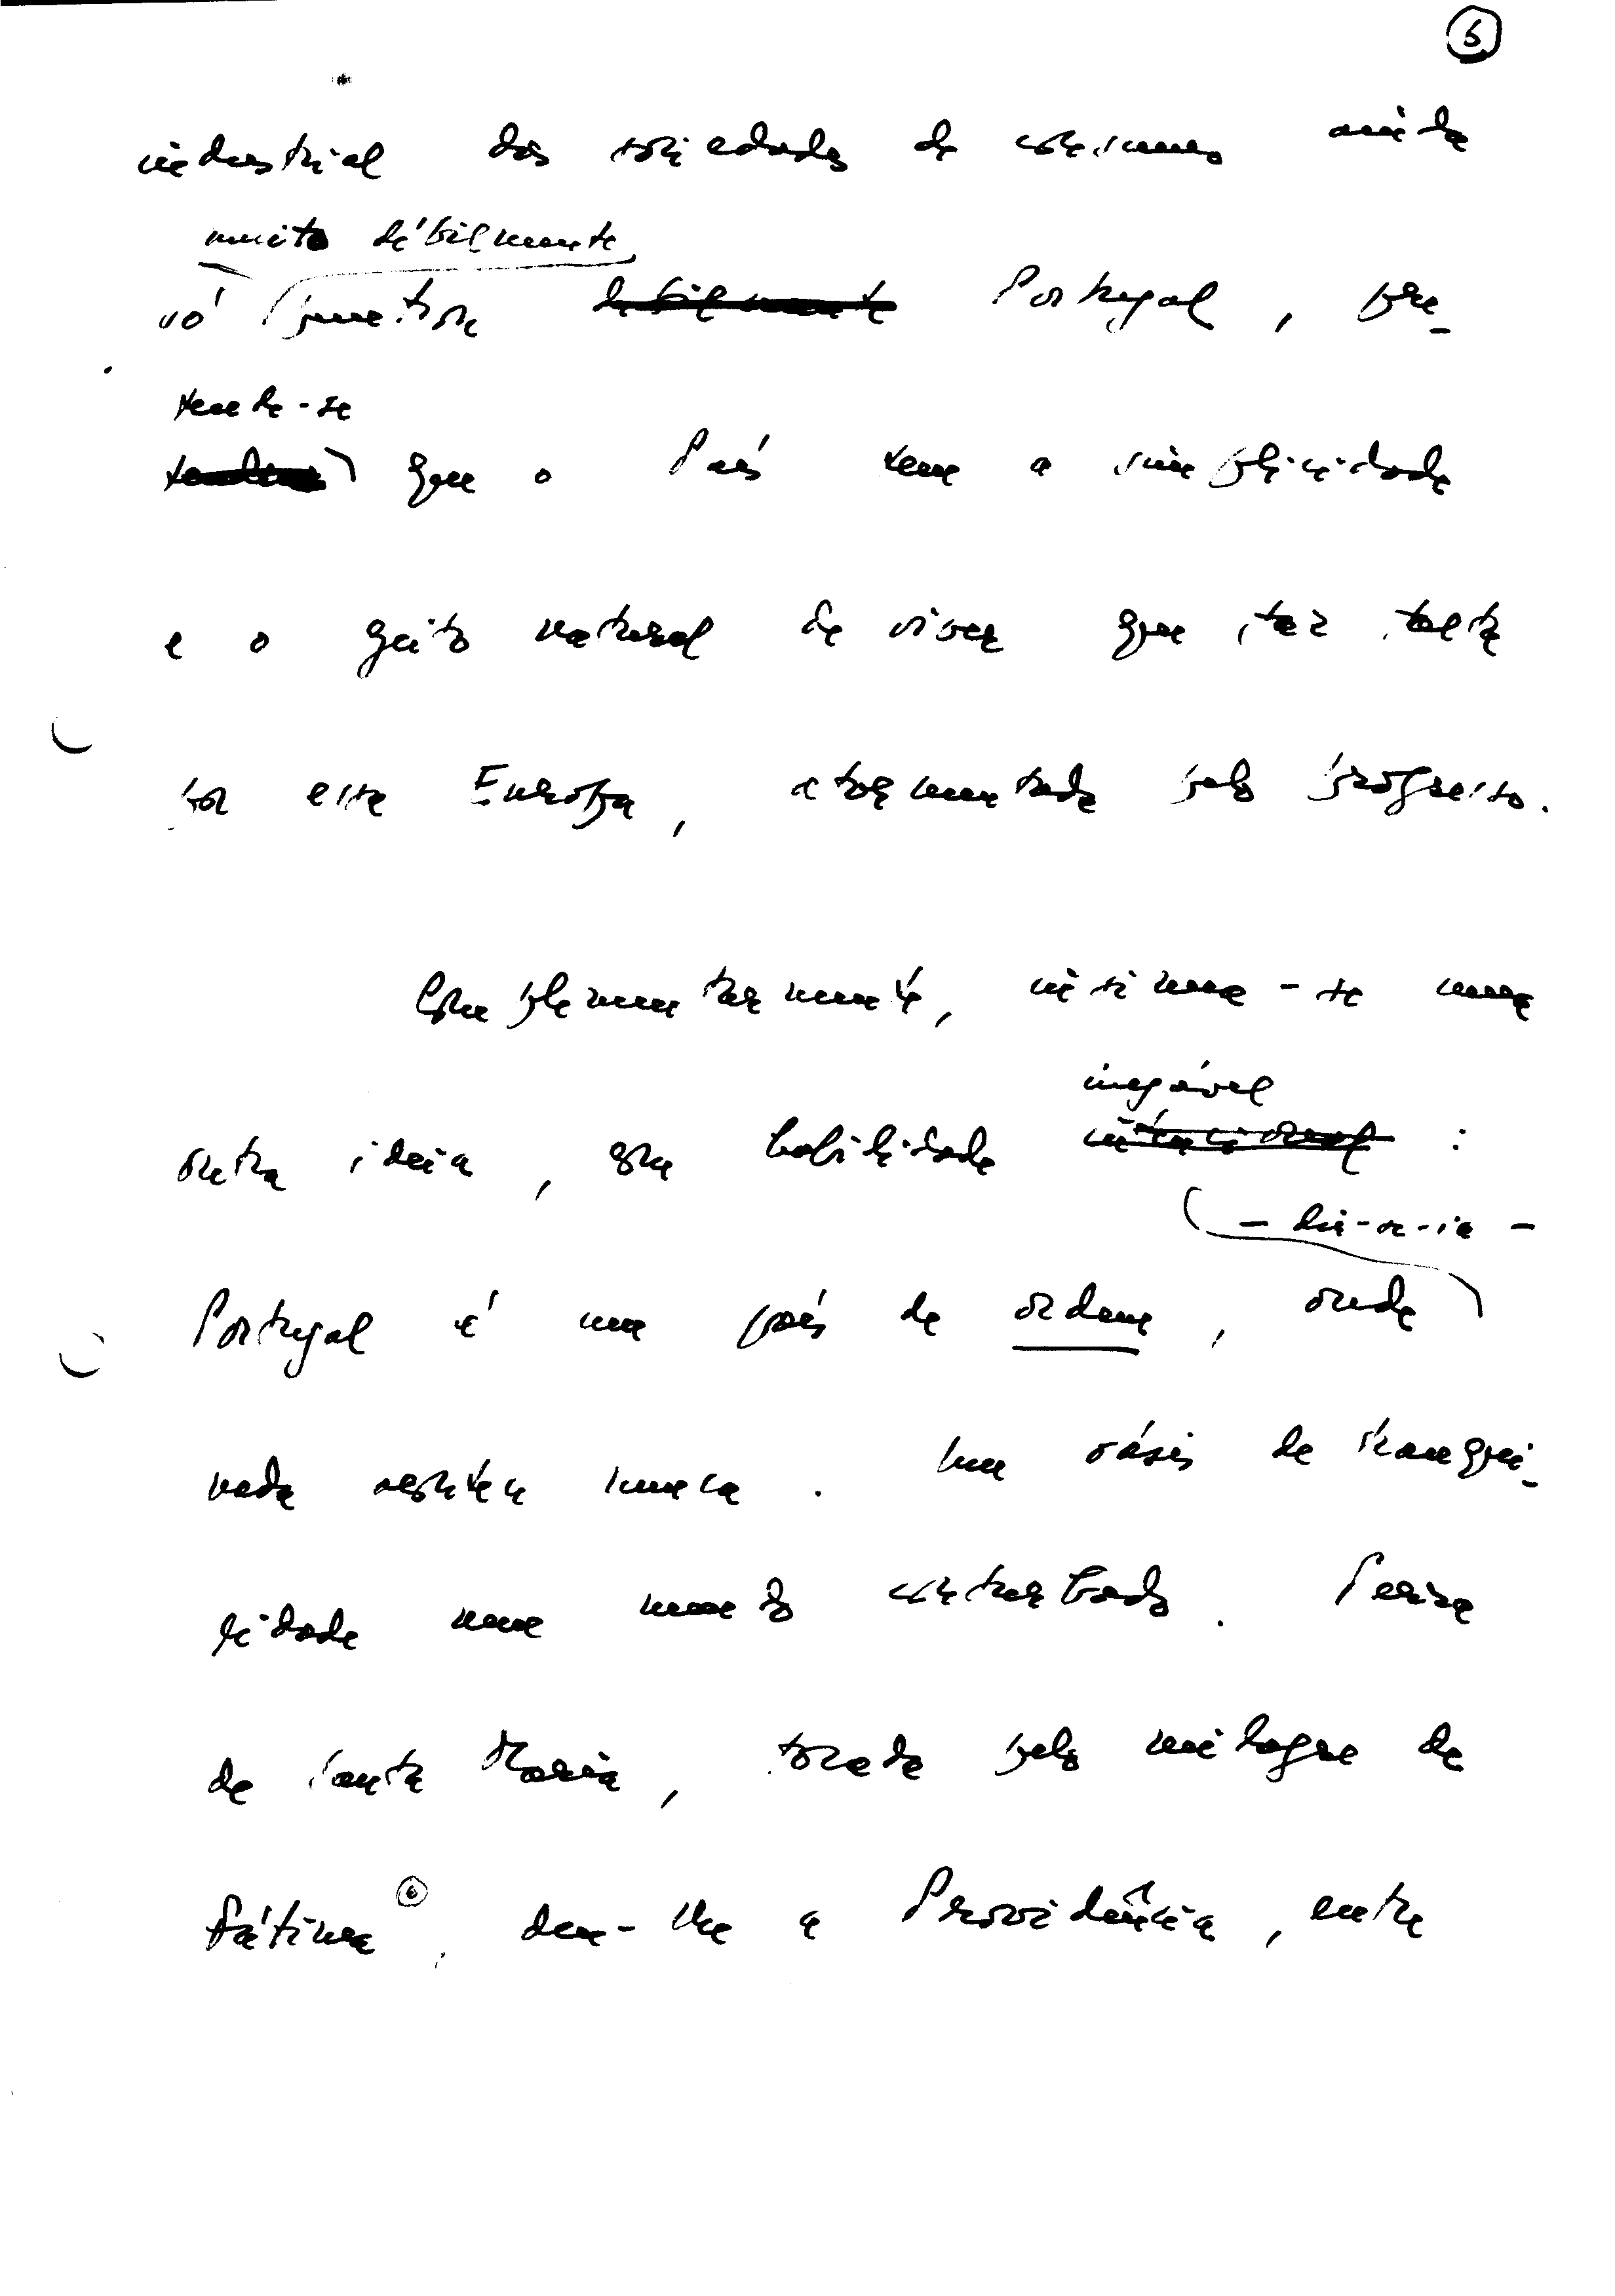 6
industrial das sociedades de consumo ainda
muito débilmente
só penetrou debilmente Portugal, pre-
tende-se
que o País tem a simplicidade
e o geito natural de viver que faz falta
por essa Europa, atormentada pelo progresso.
Complementarmente, insinua-se uma
inegável
outra ideia, com habilidade :
- dir-se-ia -
Portugal é um país de ordem, onde
nada acontece nunca. Um oásis de tranqui-
lidade num mundo conturbado. Terra
de Santa Maria, tocada pelo milagre de
Fátima 6, deu-lhe a Providência, entre